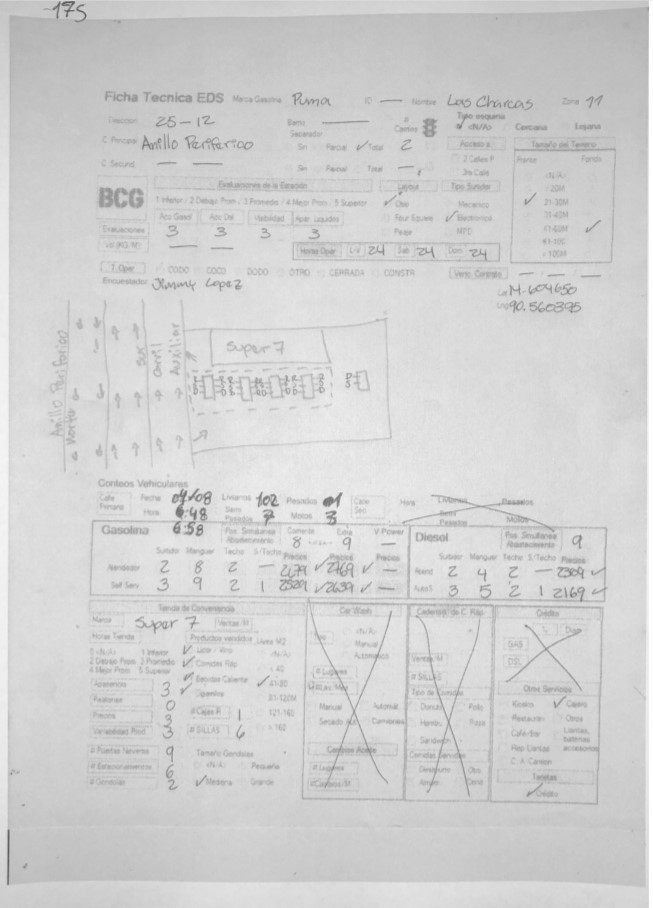 -175
Ficha Tecnica EDS Marca Gasolina Puma ID — Nombre Las Charcas Zona 11
Dirección 25-12 Barrio — # Carriles 2 Tipo esquina <N/A> Cercana Lejana
C. Principal Anillo Periferico Separador Sin Parcial ✓ Total Acceso a Tamaño del Terreno
C. Secund. — — Sin Parcial Total — 2 Calles P. Frente Fondo
3ra Calle <N/A>
BCG Evaluaciones de la Estación Layout Tipo Surtidor < 20M
1 Inferior / 2 Debajo Prom / 3 Promedio / 4 Mejor Prom 5 Superior ✓ Otro Mecanico ✓ 21-30M
Visibilidad Four Square ✓ Electronico 31-40M
Evaluaciones 3 3 3 3 Pasaje MPD 41-60M ✓
Vol (KG/M) — — Horas Oper L-V 24 Sab 24 Dom 24 61-100
> 100M
T. Oper CODO COCO DODO OTRO CERRADA CONSTR Venc. Contrato — — —
Encuestador Jimmy Lopez
Lat 14.604650
Lng 90.560395
Anillo Periferico
Norte
Sur
Carril
Auxiliar
Super 7
Conteos Vehiculares
Calle Primaria Fecha 04/08 Livianos 102 Pesados 01 Calle Sec Hora Livianos Pesados
Hora 6:48 Semi Pesados 7 Motos 3 Semi Pesados Motos
6:58
Gasolina Pos. Simultanea Abastecimiento Corriente 8 Extra 9 V Power — Diesel Pos. Simultanea Abastecimiento 9
Surtidor Manguer Techo S/Techo Precios Precios Precios Surtidor Manguer Techo S/Techo Precios
Atendedor 2 8 2 — 2679 ✓ 2769 ✓ — Atend 2 4 2 — 2309 ✓
Self Serv. 3 9 2 1 2539 ✓ 2639 ✓ — AutoS 3 5 2 1 2169 ✓
Tienda de Conveniencia Car Wash Caderas de C. Rap. Crédito
Marca Super 7 Ventas/M
Horas Tienda Productos vendidos Area M2 Tipo <N/A>
0 <N/A> 1 Inferior ✓ Licor - Vino <N/A> Manual
2 Debajo Prom 3 Promedio ✓ Comidas Rap < 40 Automatico Ventas/M
4 Mejor Prom 5 Superior ✓ Bebidas Caliente ✓ 41-80 # Lugares # SILLAS DSL
Apariencia 3 ✓ 81-120M Tipo de Comidas Otros Servicios
Peatones 0 # Cajas R 1 121-160 Manual Automát. Donuts Pollo Kiosko ✓ Cajero
Precios 3 # SILLAS 6 > 160 Hambu. Pizza Restauran Otros
Variabilidad Prod. 3 Sandwich Cafe-Bar Llantas, baterias accesorios
# Puertas Neveras 9 Tamaño Gondolas Cambios Aceite Comidas Servidas Rep. Llantas
# Estacionamientos 6 <N/A> Pequeño # Lugares Desayuno Otro C. A. Camion
# Gondolas 2 ✓ Mediana Grande # Cambios/M Almzo Cena Tarjetas
✓ Crédito